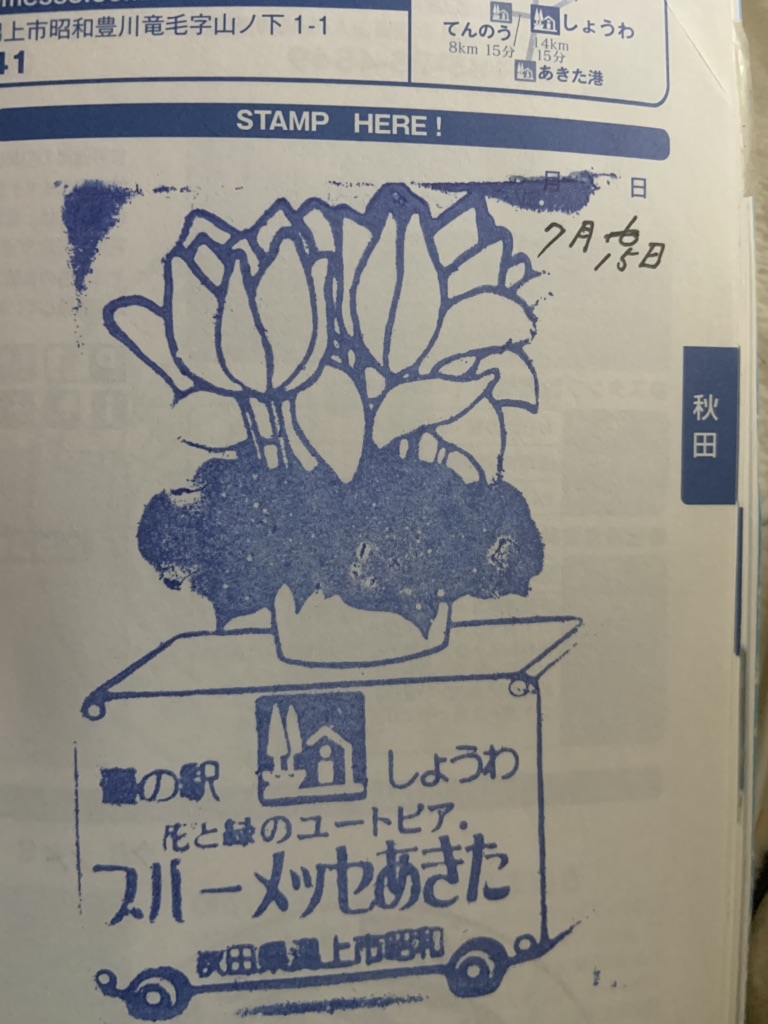 上市昭和豊川竜毛字山ノ下 1-1
41
てんのう
8km 15分
しょうわ
14km
15分
あきた港
STAMP HERE!
月 日
7月15日
秋田
道の駅 しょうわ
花と緑のユートピア.
ブルーメッセあきた
秋田県潟上市昭和